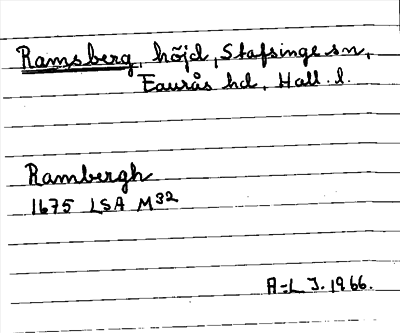 Ramsberg, höjd, Stafsinge sn,
Faurås hd, Hall. l.
Rambergh
1675 LSA M32
A-L J. 1966.